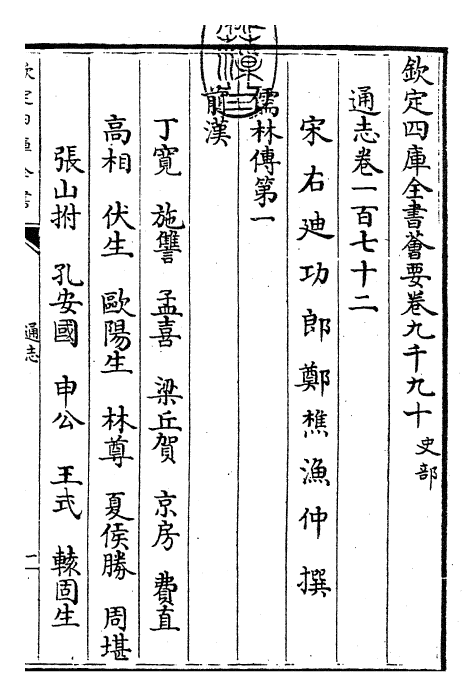 欽定四庫全書薈要卷九千九十 史部
通志卷一百七十二
宋右迪功郎鄭樵漁仲撰
儒林傳第一
前漢
丁寛 施讐 孟喜 梁丘賀 京房 費直
高相 伏生 歐陽生 林尊 夏侯勝 周堪
張山拊 孔安國 申公 王式 轅固生
欽定四庫全書
通志
一